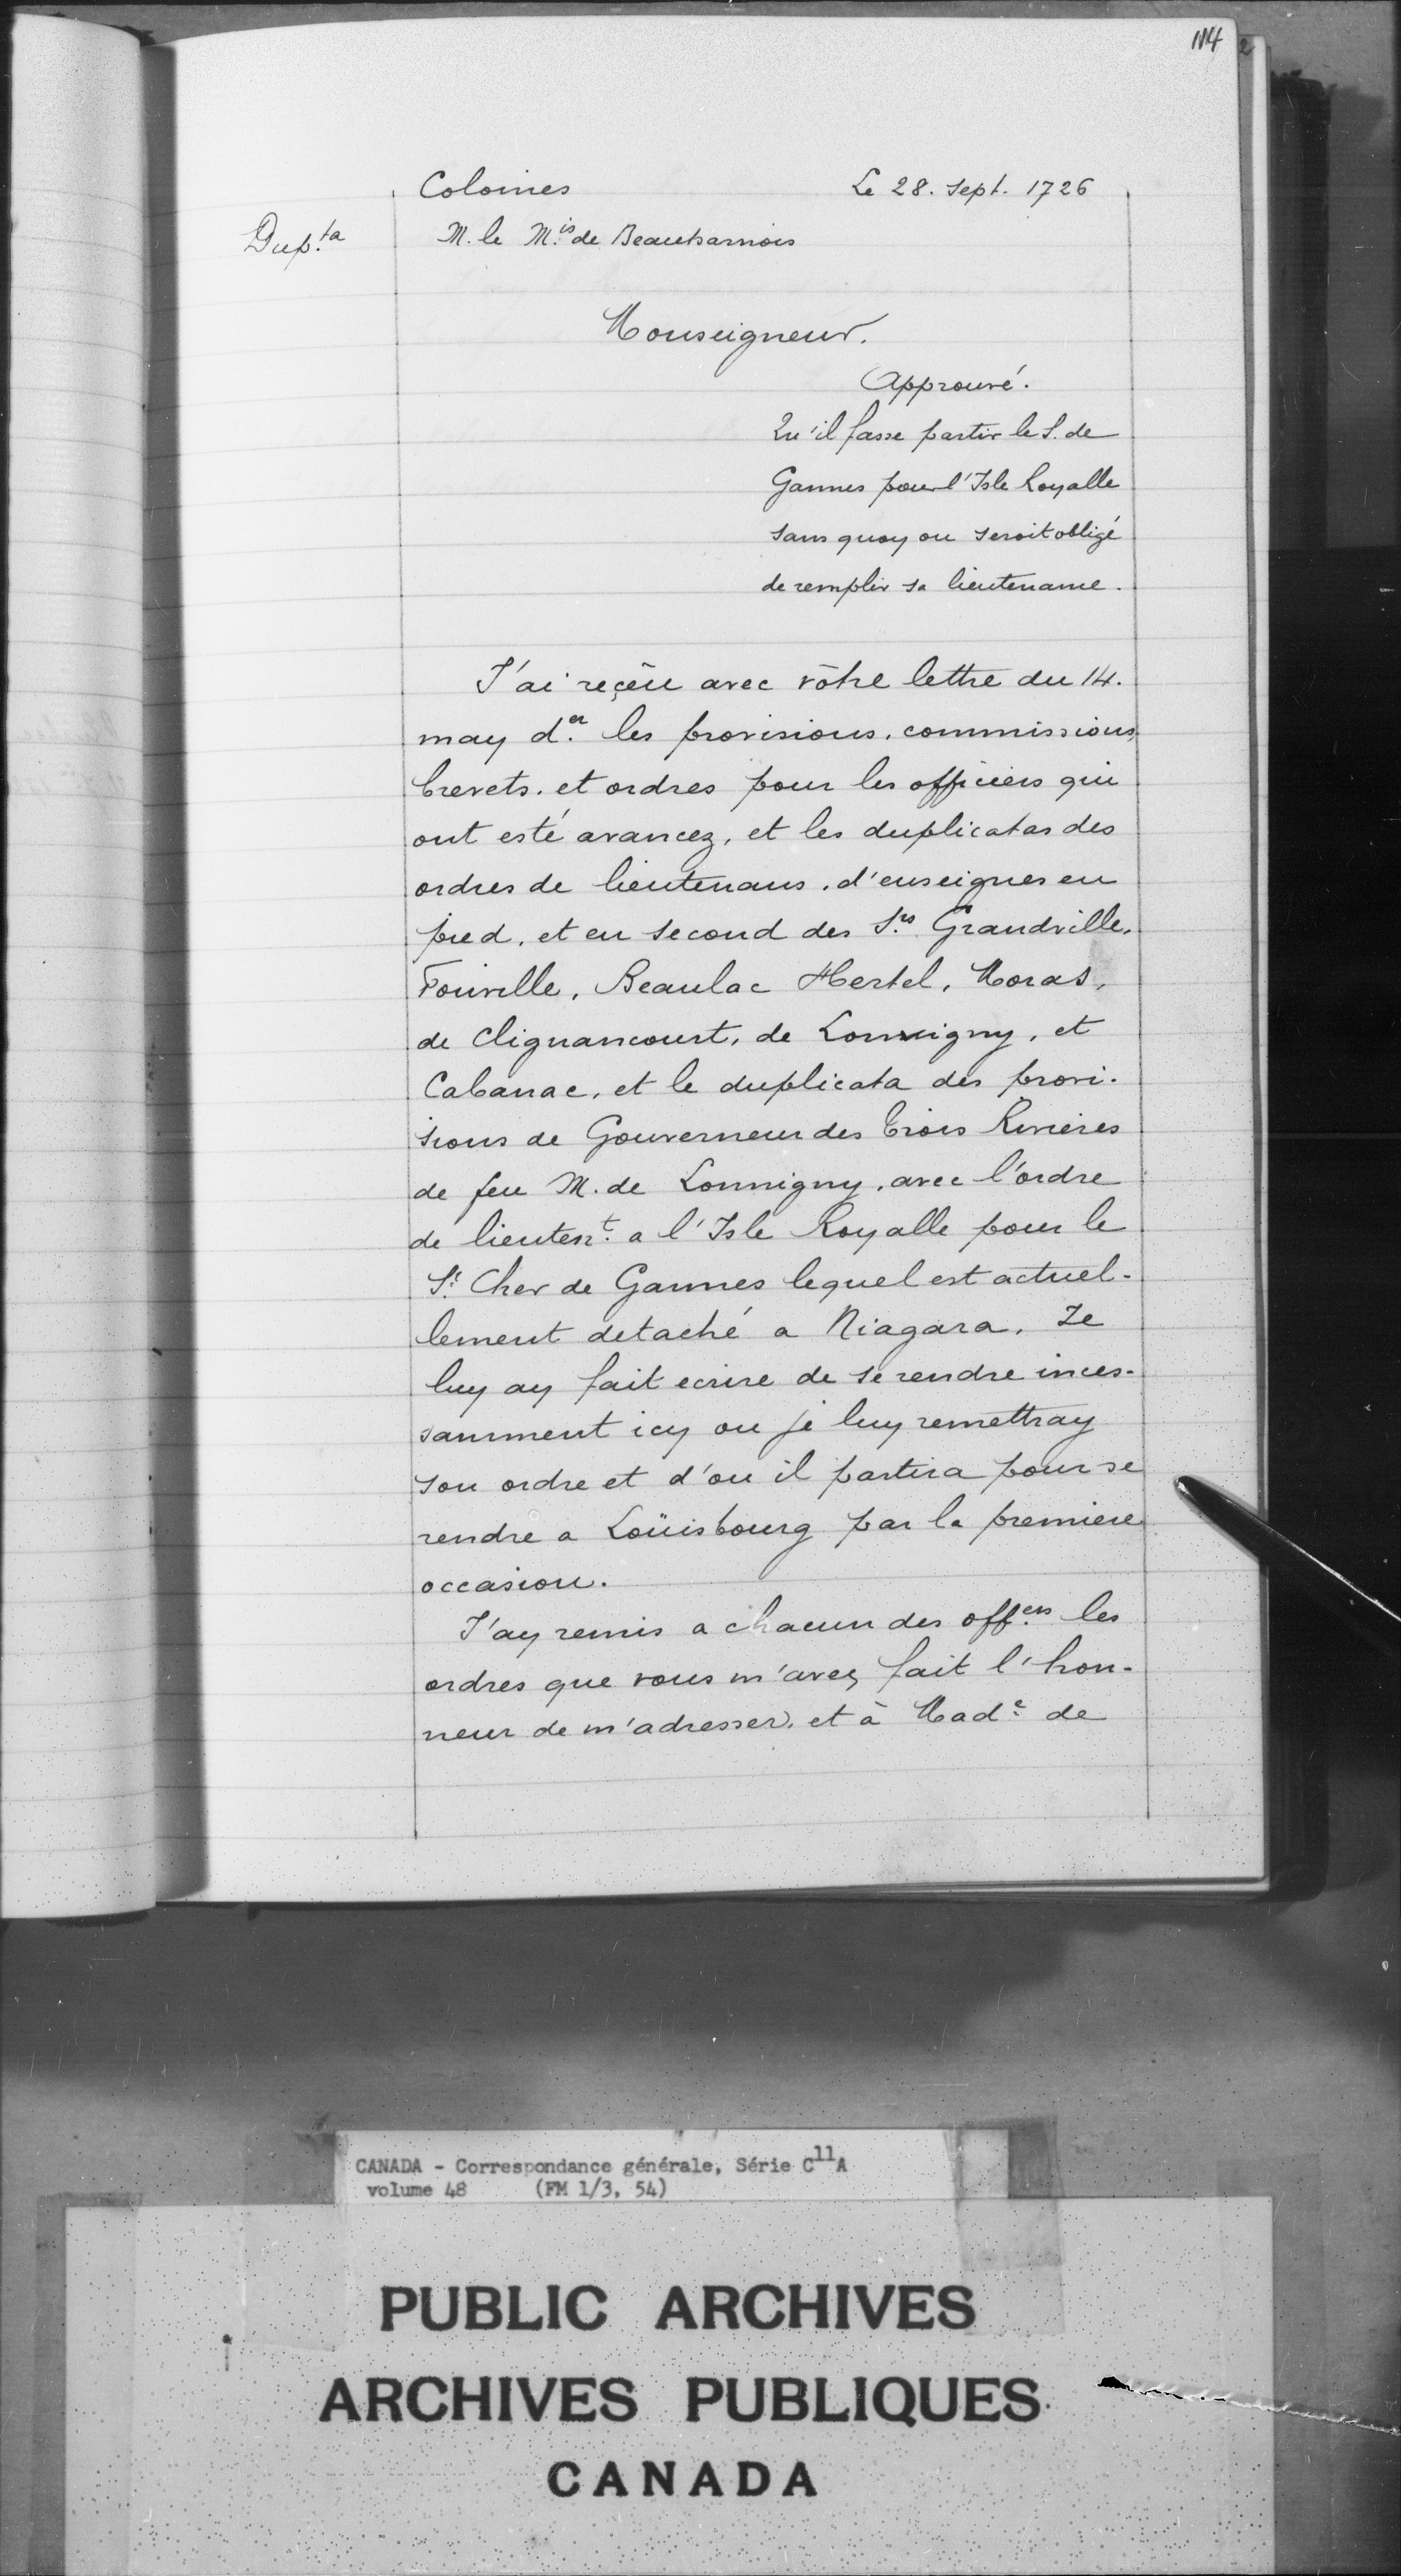 114
2
Colonies Le 28. Sept. 1726
Dup.ta M. le M.is de Beauharnois
Monseigneur.
Approuvé.
Qu'il fasse partir le S. de
Gannes pour l'Isle Royalle
sans quoy on seroit obligé
de remplir sa lieutenance.
J'ai reçëu avec vôtre lettre du 14.
may d.er les provisions, commissions,
brevets, et ordres pour les officiers qui
ont esté avancez, et les duplicatas des
ordres de lieutenans, d'enseignes en
pied, et en second des S.rs Grandville,
Fouville, Beaulac Hertel, Moras,
de Clignancourt, de Louvigny, et
Cabanac, et le duplicata des provi-
sions de Gouverneur des Trois Rivieres
de feu M. de Louvigny, avec l'ordre
de lieuten.t a l'Isle Royalle pour le
S.r Cher de Gannes lequel est actuel-
lement detaché a Niagara. Je
luy ay fait ecrire de se rendre inces-
samment icy ou je luy remettray
son ordre et d'ou il partira pour se
rendre a Loüisbourg par la premiere
occasion.
J'ay remis a chacun des off.ers les
ordres que vous m'avez fait l'hon-
neur de m'adresser, et à Mad.e de
CANADA - Correspondance générale, Série C11A
volume 48 (FM 1/3, 54)
PUBLIC ARCHIVES
ARCHIVES PUBLIQUES
CANADA